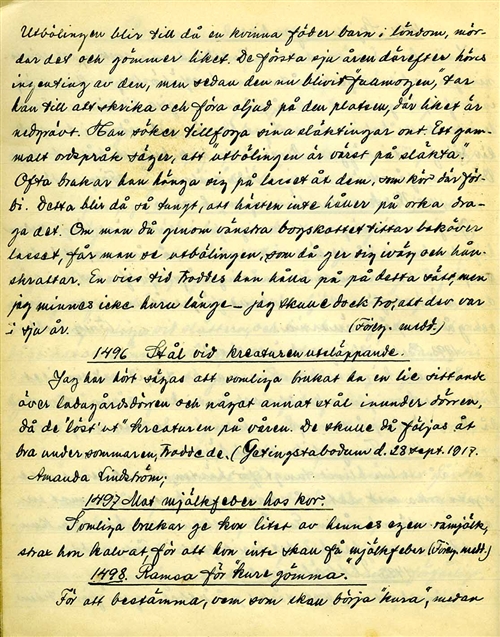 Utbölingen blir till då en kvinna föder barn i löndom, mör-
dar det och gömmer liket. De första sju åren därefter höres
ingenting av den, men sedan den nu blivit "fuamogen", tar
han till att skrika och föra oljud på den platsen, där liket är
nedgrävt. Han söker tillfoga sina släktingar ont. Ett gam-
malt ordspråk säger, att "utbölingen är värst på släkta."
Ofta brukar han hänga sig på lasset åt dem, som kör där för-
bi. Detta blir då så tungt, att hästen inte håller på orka dra-
ga det. Om man då genom vänstra bogskottet tittar bakåt
lasset, får man se utbölingen, som då ger sig iväg och hån-
skrattar. En viss tid troddes han hålla på på detta sätt, men
jag minnes icke huru länge – jag skulle dock tro, att det var
i sju år. (Föreg. medd.)
1496 Stål vid kreaturens utsläppande.
Jag har hört sägas att somliga brukat ha en lie sittande
över ladugårdsdörren och något annat stål inunder dörren,
då de "löst ut" kreaturen på våren. De skulle då följas åt
bra under sommaren, trodde de. (Getingstabodum d. 23 sept. 1917.
Amanda Lindström;
1497 Mot mjölkfeber hos kor.
Somliga brukar ge kon litet av hennes egen råmjölk,
strax hon kalvat för att hon inte skall få mjölkfeber (Föreg. medd.)
1498. Ramsa för "kurc gömma."
För att bestämma, vem som skall börja "kura", medan